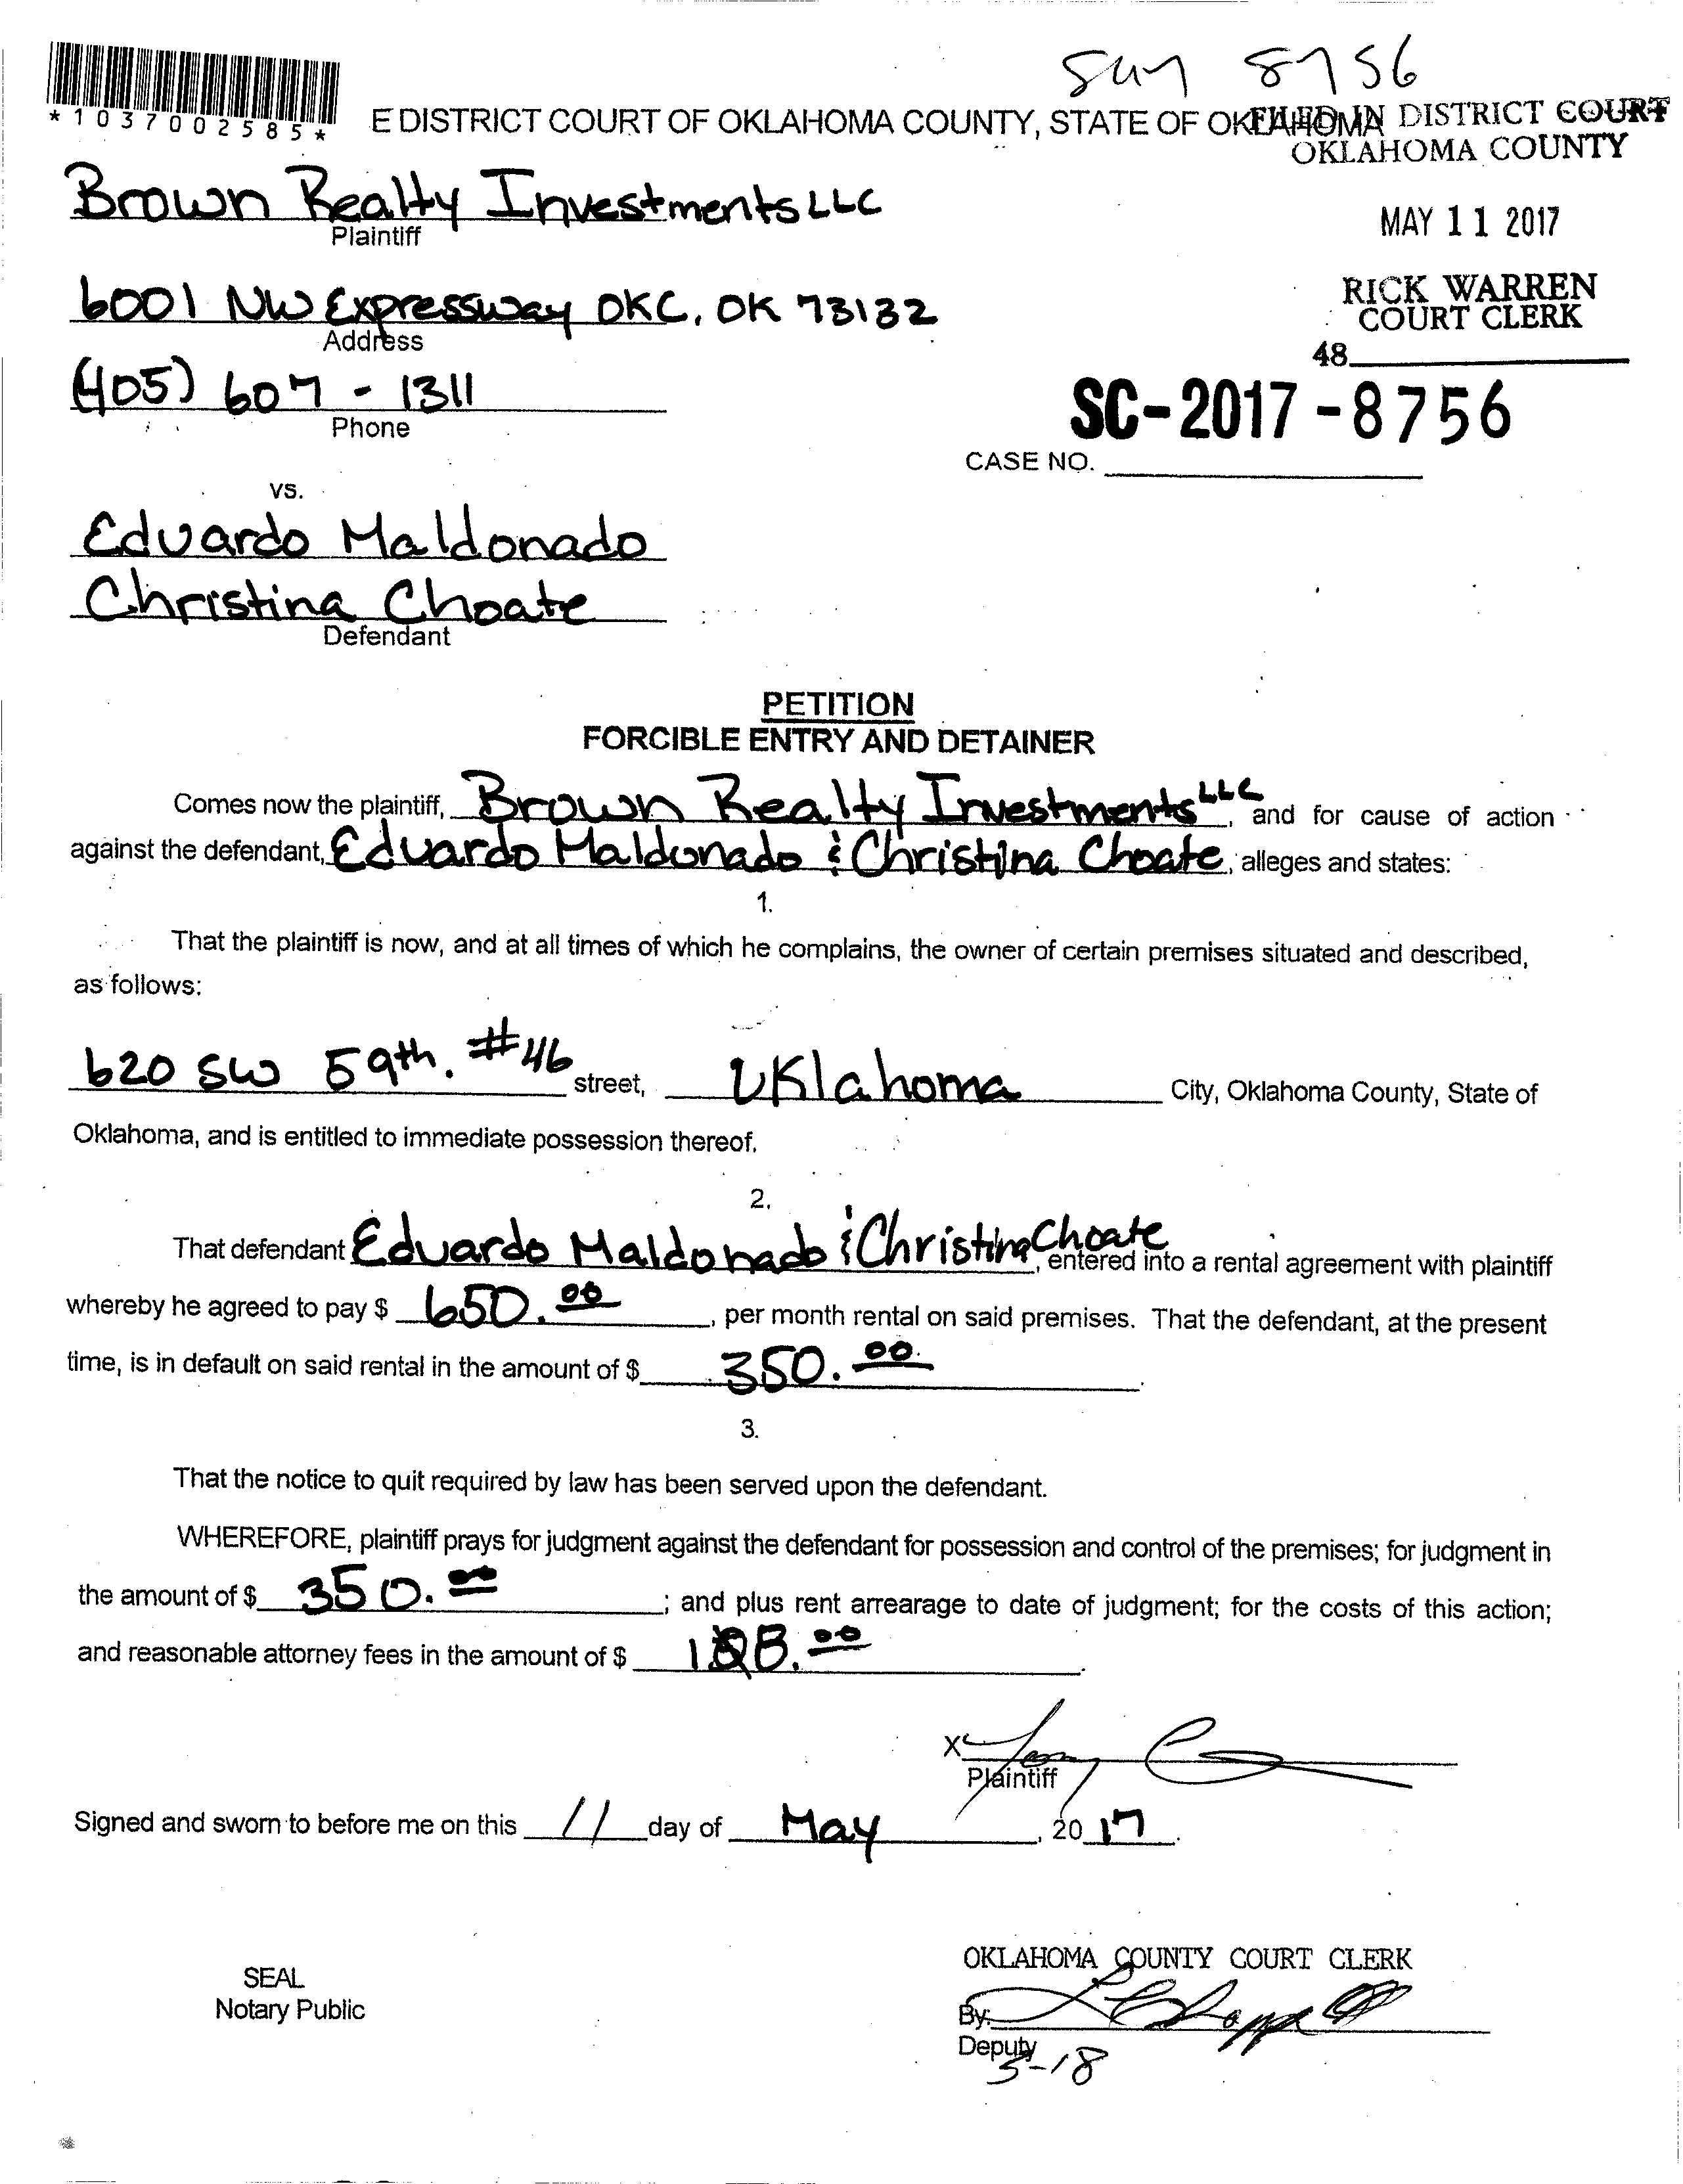 8756
*1037002585*
E DISTRICT COURT OF OKLAHOMA COUNTY, STATE OF OKLAHOMA
FILED IN DISTRICT COURT
OKLAHOMA COUNTY
Brown Realty Investments LLC
Plaintiff
MAY 11 2017
6001 NW Expressway OKC, OK 73132
Address
RICK WARREN
COURT CLERK
48
(405) 607 - 1311
Phone
SC-2017-8756
CASE NO.
vs.
Eduardo Maldonado
Christina Choate
Defendant
PETITION
FORCIBLE ENTRY AND DETAINER
Comes now the plaintiff, Brown Realty Investments LLC, and for cause of action
against the defendant, Eduardo Maldonado & Christina Choate, alleges and states:
1.
That the plaintiff is now, and at all times of which he complains, the owner of certain premises situated and described,
as follows:
620 SW 59th. #46 street, Oklahoma City, Oklahoma County, State of
Oklahoma, and is entitled to immediate possession thereof.
2.
That defendant Eduardo Maldonado & Christina Choate, entered into a rental agreement with plaintiff
whereby he agreed to pay $ 650.00, per month rental on said premises. That the defendant, at the present
time, is in default on said rental in the amount of $ 350.00.
3.
That the notice to quit required by law has been served upon the defendant.
WHEREFORE, plaintiff prays for judgment against the defendant for possession and control of the premises; for judgment in
the amount of $ 350.00; and plus rent arrearage to date of judgment; for the costs of this action;
and reasonable attorney fees in the amount of $
X
Plaintiff
Signed and sworn to before me on this 11 day of May, 2017.
OKLAHOMA COUNTY COURT CLERK
SEAL
Notary Public
By:
Deputy
5-18